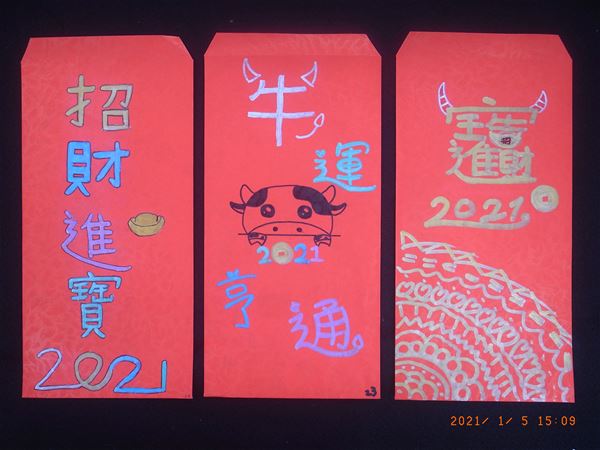 招
財
進
寶
2021
牛
運
2021
亨
通
23
招財進寶
2021
2021/ 1/ 5 15:09